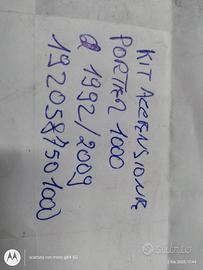 KIT ACCENSIONE
PORTER 1000
1992/2009
1920587501000
Subito
scattata con moto g84 5G